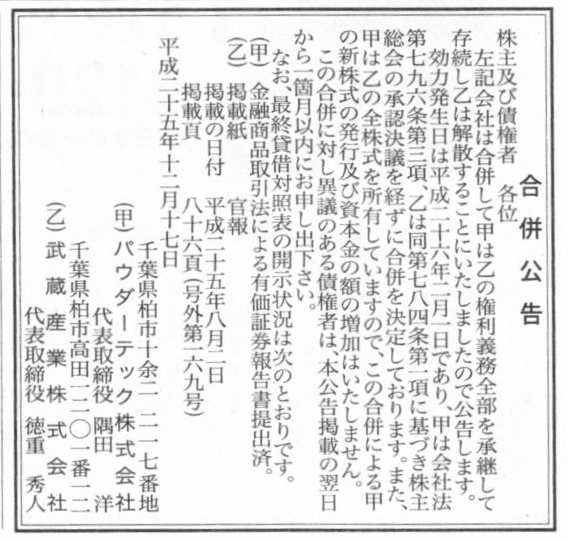 合併公告
株主及び債権者　各位
左記会社は合併して甲は乙の権利義務全部を承継して
存続し乙は解散することにいたしましたので公告します。
効力発生日は平成二十六年二月一日であり、甲は会社法
第七九六条第三項、乙は同第七八四条第一項に基づき株主
総会の承認決議を経ずに合併を決定しております。また、
甲は乙の全株式を所有していますので、この合併による甲
の新株式の発行及び資本金の額の増加はいたしません。
この合併に対し異議のある債権者は、本公告掲載の翌日
から一箇月以内にお申し出下さい。
なお、最終貸借対照表の開示状況は次のとおりです。
（甲）金融商品取引法による有価証券報告書提出済。
（乙）掲載紙　官報
掲載の日付　平成二十五年八月二日
掲載頁　八十六頁（号外第一六九号）
平成二十五年十二月十七日
千葉県柏市十余二　二一七番地
（甲）パウダーテック株式会社
代表取締役　隅田　洋
千葉県柏市高田一二〇一番一二
（乙）武蔵産業株式会社
代表取締役　徳重　秀人